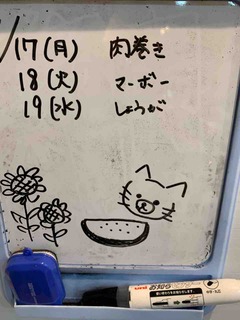 17(月) 肉巻き
18(火) マーボー
19(水) しょうが